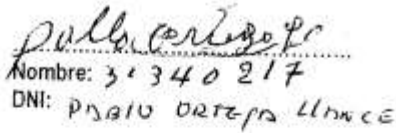 Nombre: 31340217
DNI: PABLO ORTEGA LLANCE